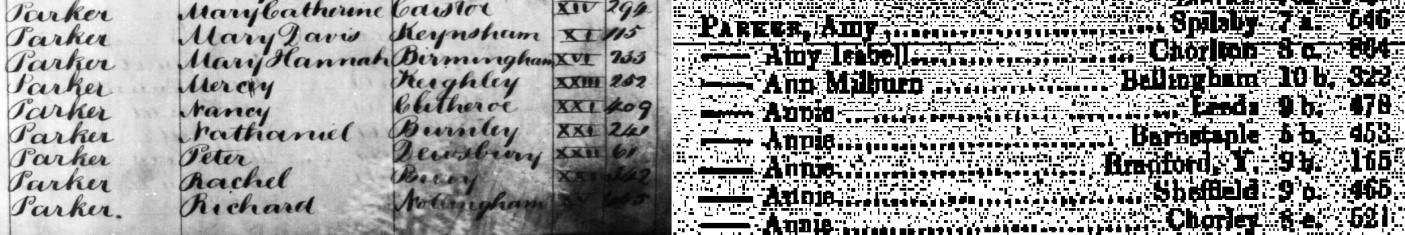 Parker Mary Catherine Caistor XIV 294
Parker Mary Davis Keynsham XI 115
Parker Mary Hannah Birmingham XVI
Parker Mercy Keighley XXIII 252
Parker Nancy Clitheroe XXI 409
Parker Nathaniel Burnley XXI
Parker Peter Dewsbury XXII
Parker Rachel Bury
Parker. Richard Nottingham XV
PARKER, Amy Spilsby 7 a. 546
— Amy Isabell Chorlton 8 c. 864
— Ann Milburn Bellingham 10 b. 322
— Annie Leeds 9 b. 478
— Annie Barnstaple 5 b. 453
— Annie Bradford, Y. 9 b. 165
— Annie Sheffield 9 c. 465
— Annie Chorley 8 e. 521